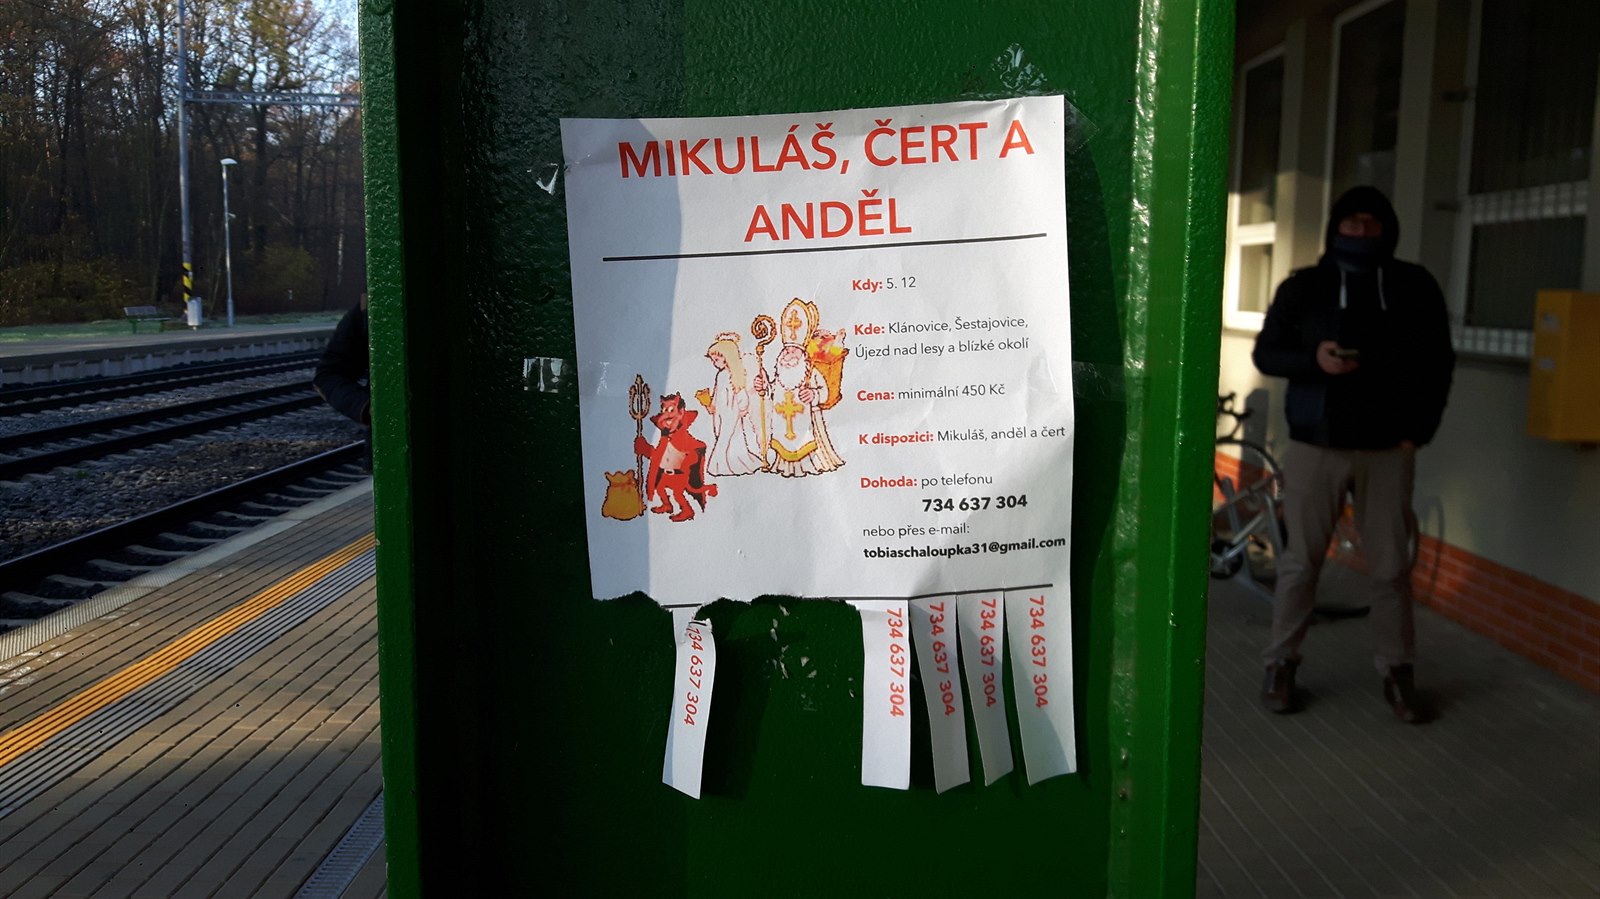 MIKULÁŠ, ČERT A
ANDĚL
Kdy: 5. 12
Kde: Klánovice, Šestajovice,
Újezd nad lesy a blízké okolí
Cena: minimální 450 Kč
K dispozici: Mikuláš, anděl a čert
Dohoda: po telefonu
734 637 304
nebo přes e-mail:
tobiaschaloupka31@gmail.com
734 637 304
734 637 304
734 637 304
734 637 304
734 637 304